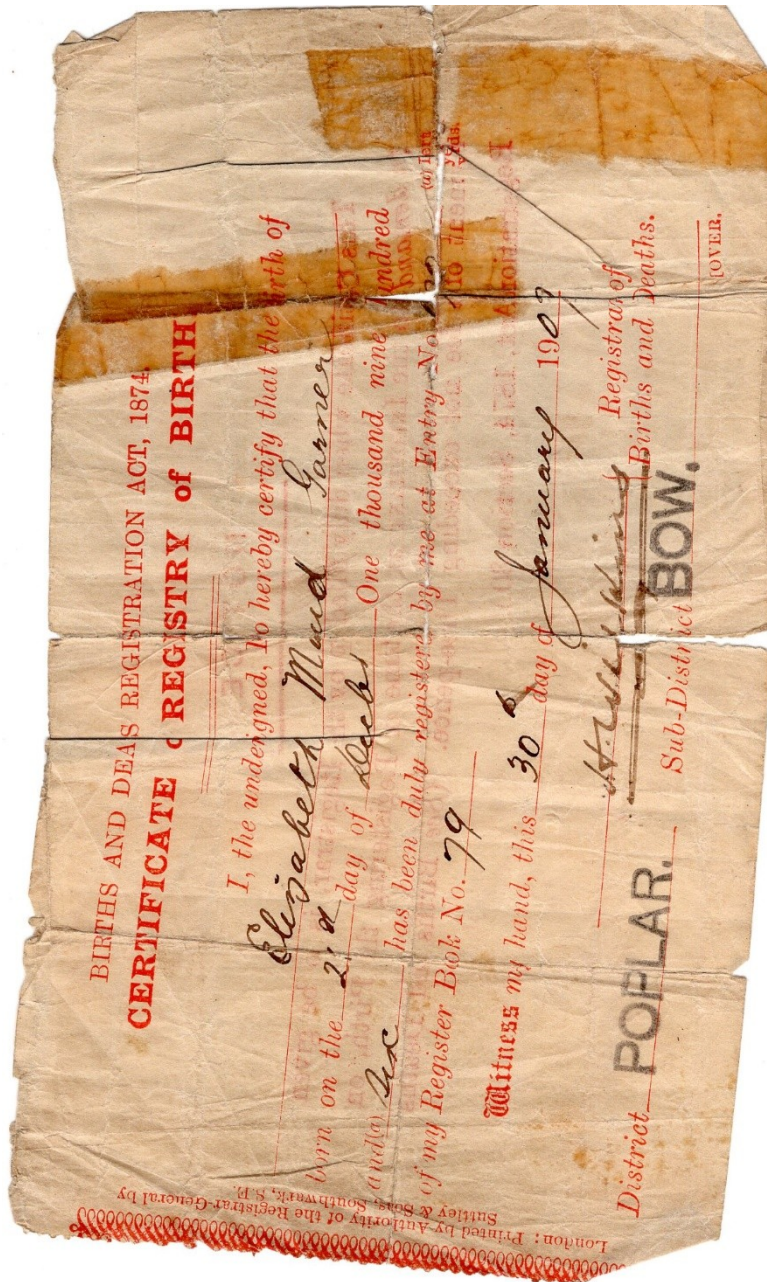 BIRTHS AND DEAS REGISTRATION ACT, 1874.
CERTIFICATE REGISTRY of BIRTH
I, the underigned, Do hereby certify that the irth of
Elizabeth Maud Garner
born on the day of Decbr One thousand nine undred
and(a) Six has been duly registere by me at Entry No.
of my Register Bok No. 79
Witness my hand, this 30th day of January 1907
Registrar of
Births and Deaths.
District POPLAR. Sub-District BOW.
[OVER.
London: Printed by Authority of the Registrar-General by
Suttley & Sons, Southwark, S.E.